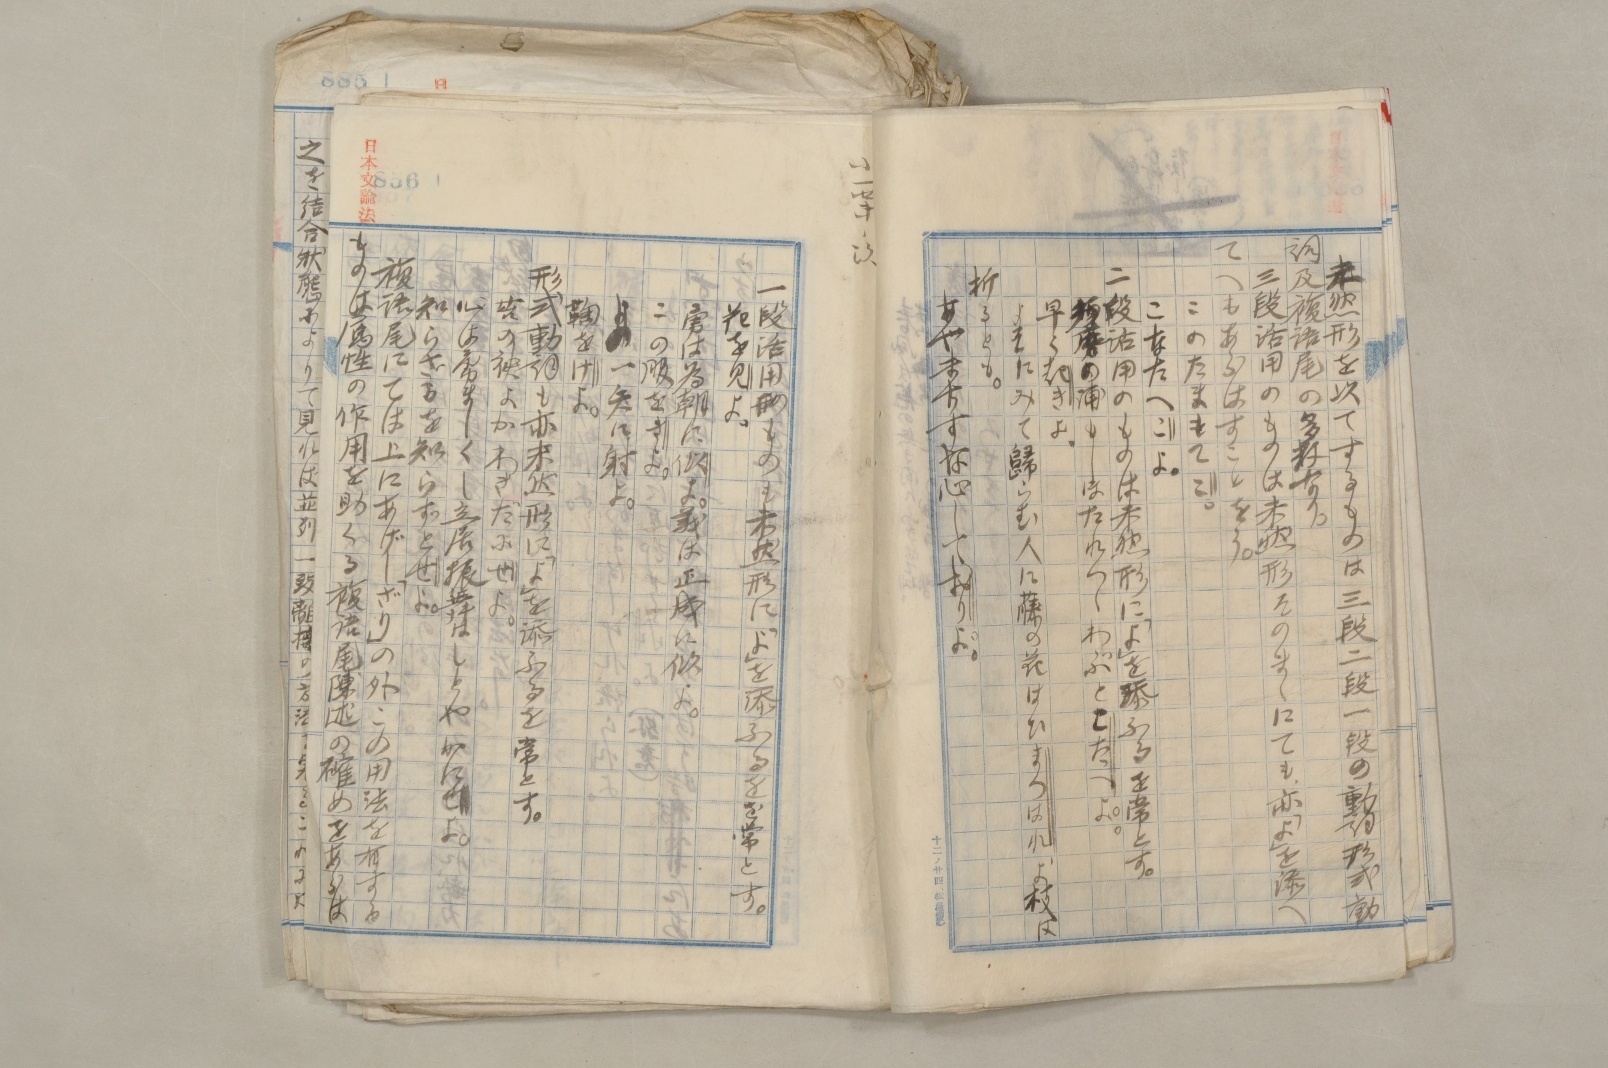 未然形を以てするものは三段二段一段の動詞形式動
詞及複語尾の多数なり。
三段活用のものは未然形そのまゝにても、亦「よ」を添へ
てへもあらはすことをう。
このたまもてこ。
こなたへこよ。
二段活用のものは未然形に「よ」を添ふるを常とす。
須磨の浦もしほたれつゝわぶとこたへよ。
早く起きよ。
よそにみて歸らむ人に藤の花はひまつはれよ枝は
折るとも。
あやまちすな心しておりよ。
小一 次
一段活用のものも未然形に「よ」を添ふるを常とす。
花を見よ。
君は為朝に似よ。義は正成に似よ。
この服をきよ。
一矢に射よ。
鞠をけよ。
形式動詞も亦未然形に「よ」を添ふるを常とす。
苔の袂よかわきだにせよ。
心は屠
知らざるを知らずとせよ。
複語尾にては上にあげし「ざり」の外この用法を有する
ものは属性の作用を助くる複語尾陳述の確めをあらは
日本文論法
856
885
之を結合状態によりて見れば並列一致